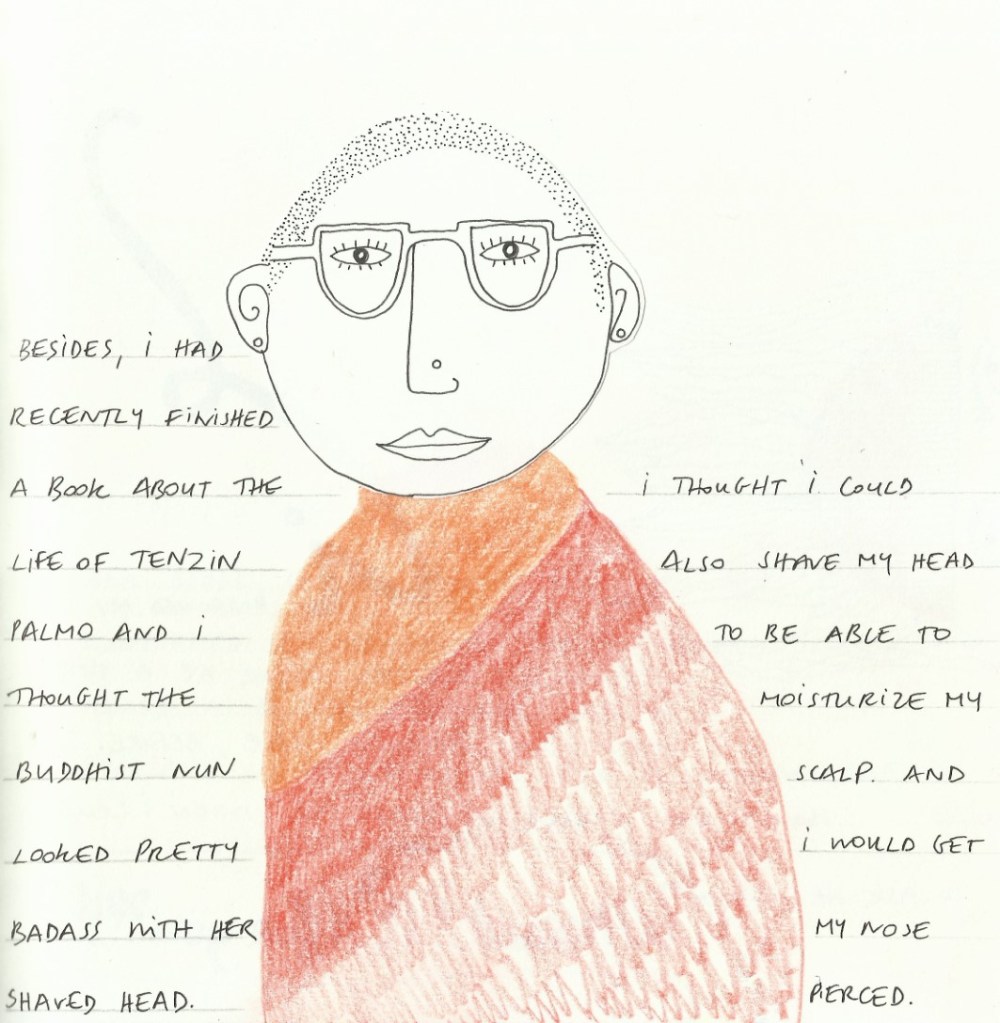 BESIDES, i HAD
RECENTLY FiNiSHED
A BOOK ABOUT THE
LiFE OF TENZiN
PALMO AND i
THOUGHT THE
BUDDHiST NUN
LOOKED PRETTY
BADASS WiTH HER
SHAVED HEAD.
i THOUGHT i COULD
ALSO SHAVE MY HEAD
TO BE ABLE TO
MOiSTURiZE MY
SCALP. AND
i WOULD GET
MY NOSE
PiERCED.